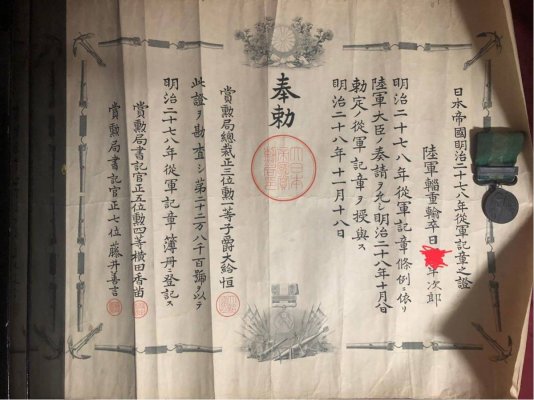 日本帝國明治二十七八年從軍記章之證
陸軍輜重輸卒日 年次郎
明治二十七八年從軍記章條例ニ依リ
陸軍大臣ノ奏請ヲ允シ明治二十八年十月
勅定ノ從軍記章ヲ授與ス
明治二十八年十一月十八日
奉勅
賞勲局總裁正三位勲一等子爵大給恒
此證ヲ勘査シ第二十二万八千百號ヲ以テ
明治二十七八年從軍記章簿册ニ登記ス
賞勲局書記官正五位勲四等横田香苗
賞勲局書記官正七位藤井善言